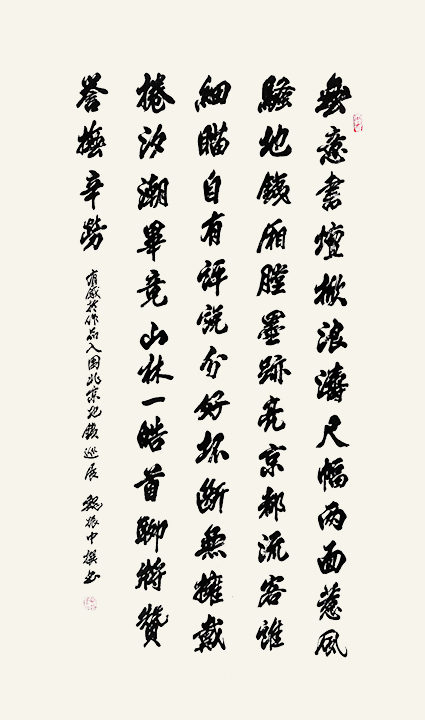 無意書壇掀浪濤尺幅兩面惹風
騷地鐵廂膛墨跡亮京都流客誰
細瞄自有評說分好坏斷無擁戴
捲汐潮畢竟山林一皓首聊將贊
譽撫辛勞
有感於作品入圍北京地鐵巡展 魏振中撰書